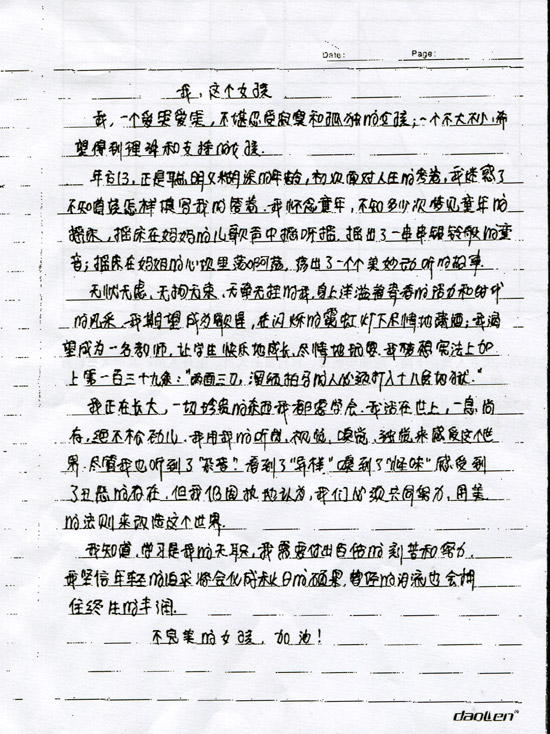 Date: Page:
我，这个女孩
我，一个爱哭爱笑，不堪忍受寂寞和孤独的女孩；一个不大不小，希
望得到理解和支持的女孩。
年方13，正是聪明又糊涂的年龄，初次面对人生的答卷，我迷惑了
不知道该怎样填写我的答卷。我怀念童年，不知多少次梦见童年的
摇床，摇床在妈妈的儿歌声中摇呀摇，摇出了一串串银铃般的童
音；摇床在妈妈的心坎里荡啊荡，荡出了一个个美妙动听的故事。
无忧无虑，无拘无束，无牵无挂的我，身上洋溢着青春的活力和时代
的风采。我期望成为歌星，在闪烁的霓虹灯下尽情地潇洒；我渴
望成为一名教师，让学生快乐地成长，尽情地玩耍。我想在宪法上加
上第一百三十九条："两面三刀，溜须拍马的人必须打入十八层地狱。"
我正在长大，一切珍贵的东西我都要学会。我站在世上，一息尚
存，绝不松劲儿。我用我的听觉、视觉、嗅觉、触觉来感受这个世
界，尽管我也听到了"杂音"看到了"异样"嗅到了"怪味"感受到
了丑恶的存在，但我仍固执地认为，我们必须共同努力，用美
的法则来改造这个世界。
我知道，学习是我的天职，我需要付出百倍的刻苦和努力，
我坚信年轻的追求将会化成秋日的硕果，曾经的泪流也会抵
住终生的丰润。
不完美的女孩，加油！
daolien